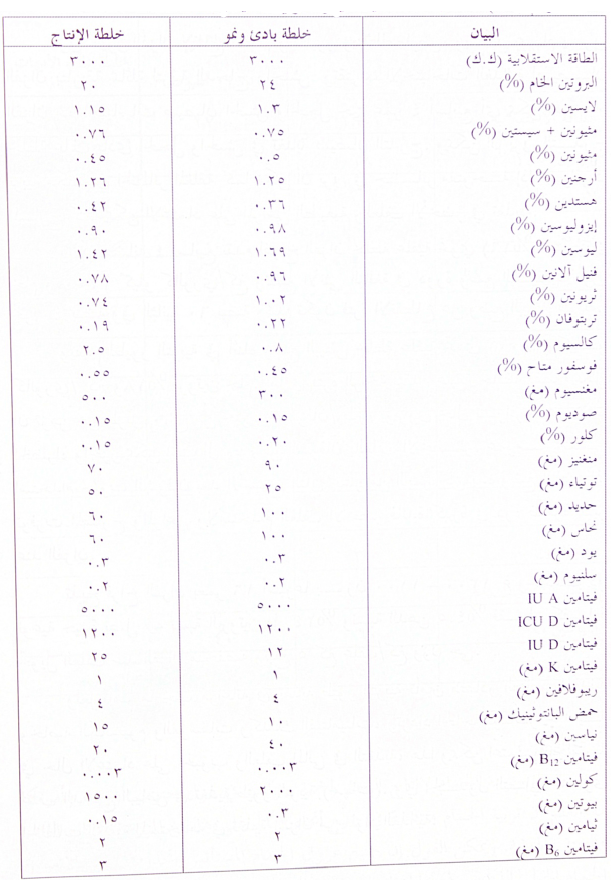 البيان خلطة بادئ ونمو خلطة الإنتاج
الطاقة الاستقلابية (ك.ك) ٣٠٠٠ ٣٠٠٠
البروتين الخام (%) ٢٤ ٢٠
لايسين (%) ١.٣ ١.١٥
مثيونين + سيستين (%) ٠.٧٥ ٠.٧٦
مثيونين (%) ٠.٥ ٠.٤٥
أرجنين (%) ١.٢٥ ١.٢٦
هستدين (%) ٠.٣٦ ٠.٤٢
إيزوليوسين (%) ٠.٩٨ ٠.٩٠
ليوسين (%) ١.٦٩ ١.٤٢
فنيل آلانين (%) ٠.٩٦ ٠.٧٨
ثريونين (%) ١.٠٢ ٠.٧٤
تربتوفان (%) ٠.٢٢ ٠.١٩
كالسيوم (%) ٠.٨ ٢.٥
فوسفور متاح (%) ٠.٤٥ ٠.٥٥
مغنسيوم (مغ) ٣٠٠ ٥٠٠
صوديوم (%) ٠.١٥ ٠.١٥
كلور (%) ٠.٢٠ ٠.١٥
منغنيز (مغ) ٩٠ ٧٠
توتياء (مغ) ٢٥ ٥٠
حديد (مغ) ١٠٠ ٦٠
نحاس (مغ) ١٠٠ ٦٠
يود (مغ) ٠.٣ ٠.٣
سلنيوم (مغ) ٠.٢ ٠.٢
فيتامين IU A ٥٠٠٠ ٥٠٠٠
فيتامين ICU D ١٢٠٠ ١٢٠٠
فيتامين IU D ١٢ ٢٥
فيتامين K (مغ) ١ ١
ريبوفلافين (مغ) ٤ ٤
حمض البانتوثينيك (مغ) ١٠ ١٥
نياسين (مغ) ٤٠ ٢٠
فيتامين B₁₂ (مغ) ٠.٠٠٣ ٠.٠٠٣
كولين (مغ) ٢٠٠٠ ١٥٠٠
بيوتين (مغ) ٠.٣ ٠.١٥
ثيامين (مغ) ٢ ٢
فيتامين B₆ (مغ) ٣ ٣